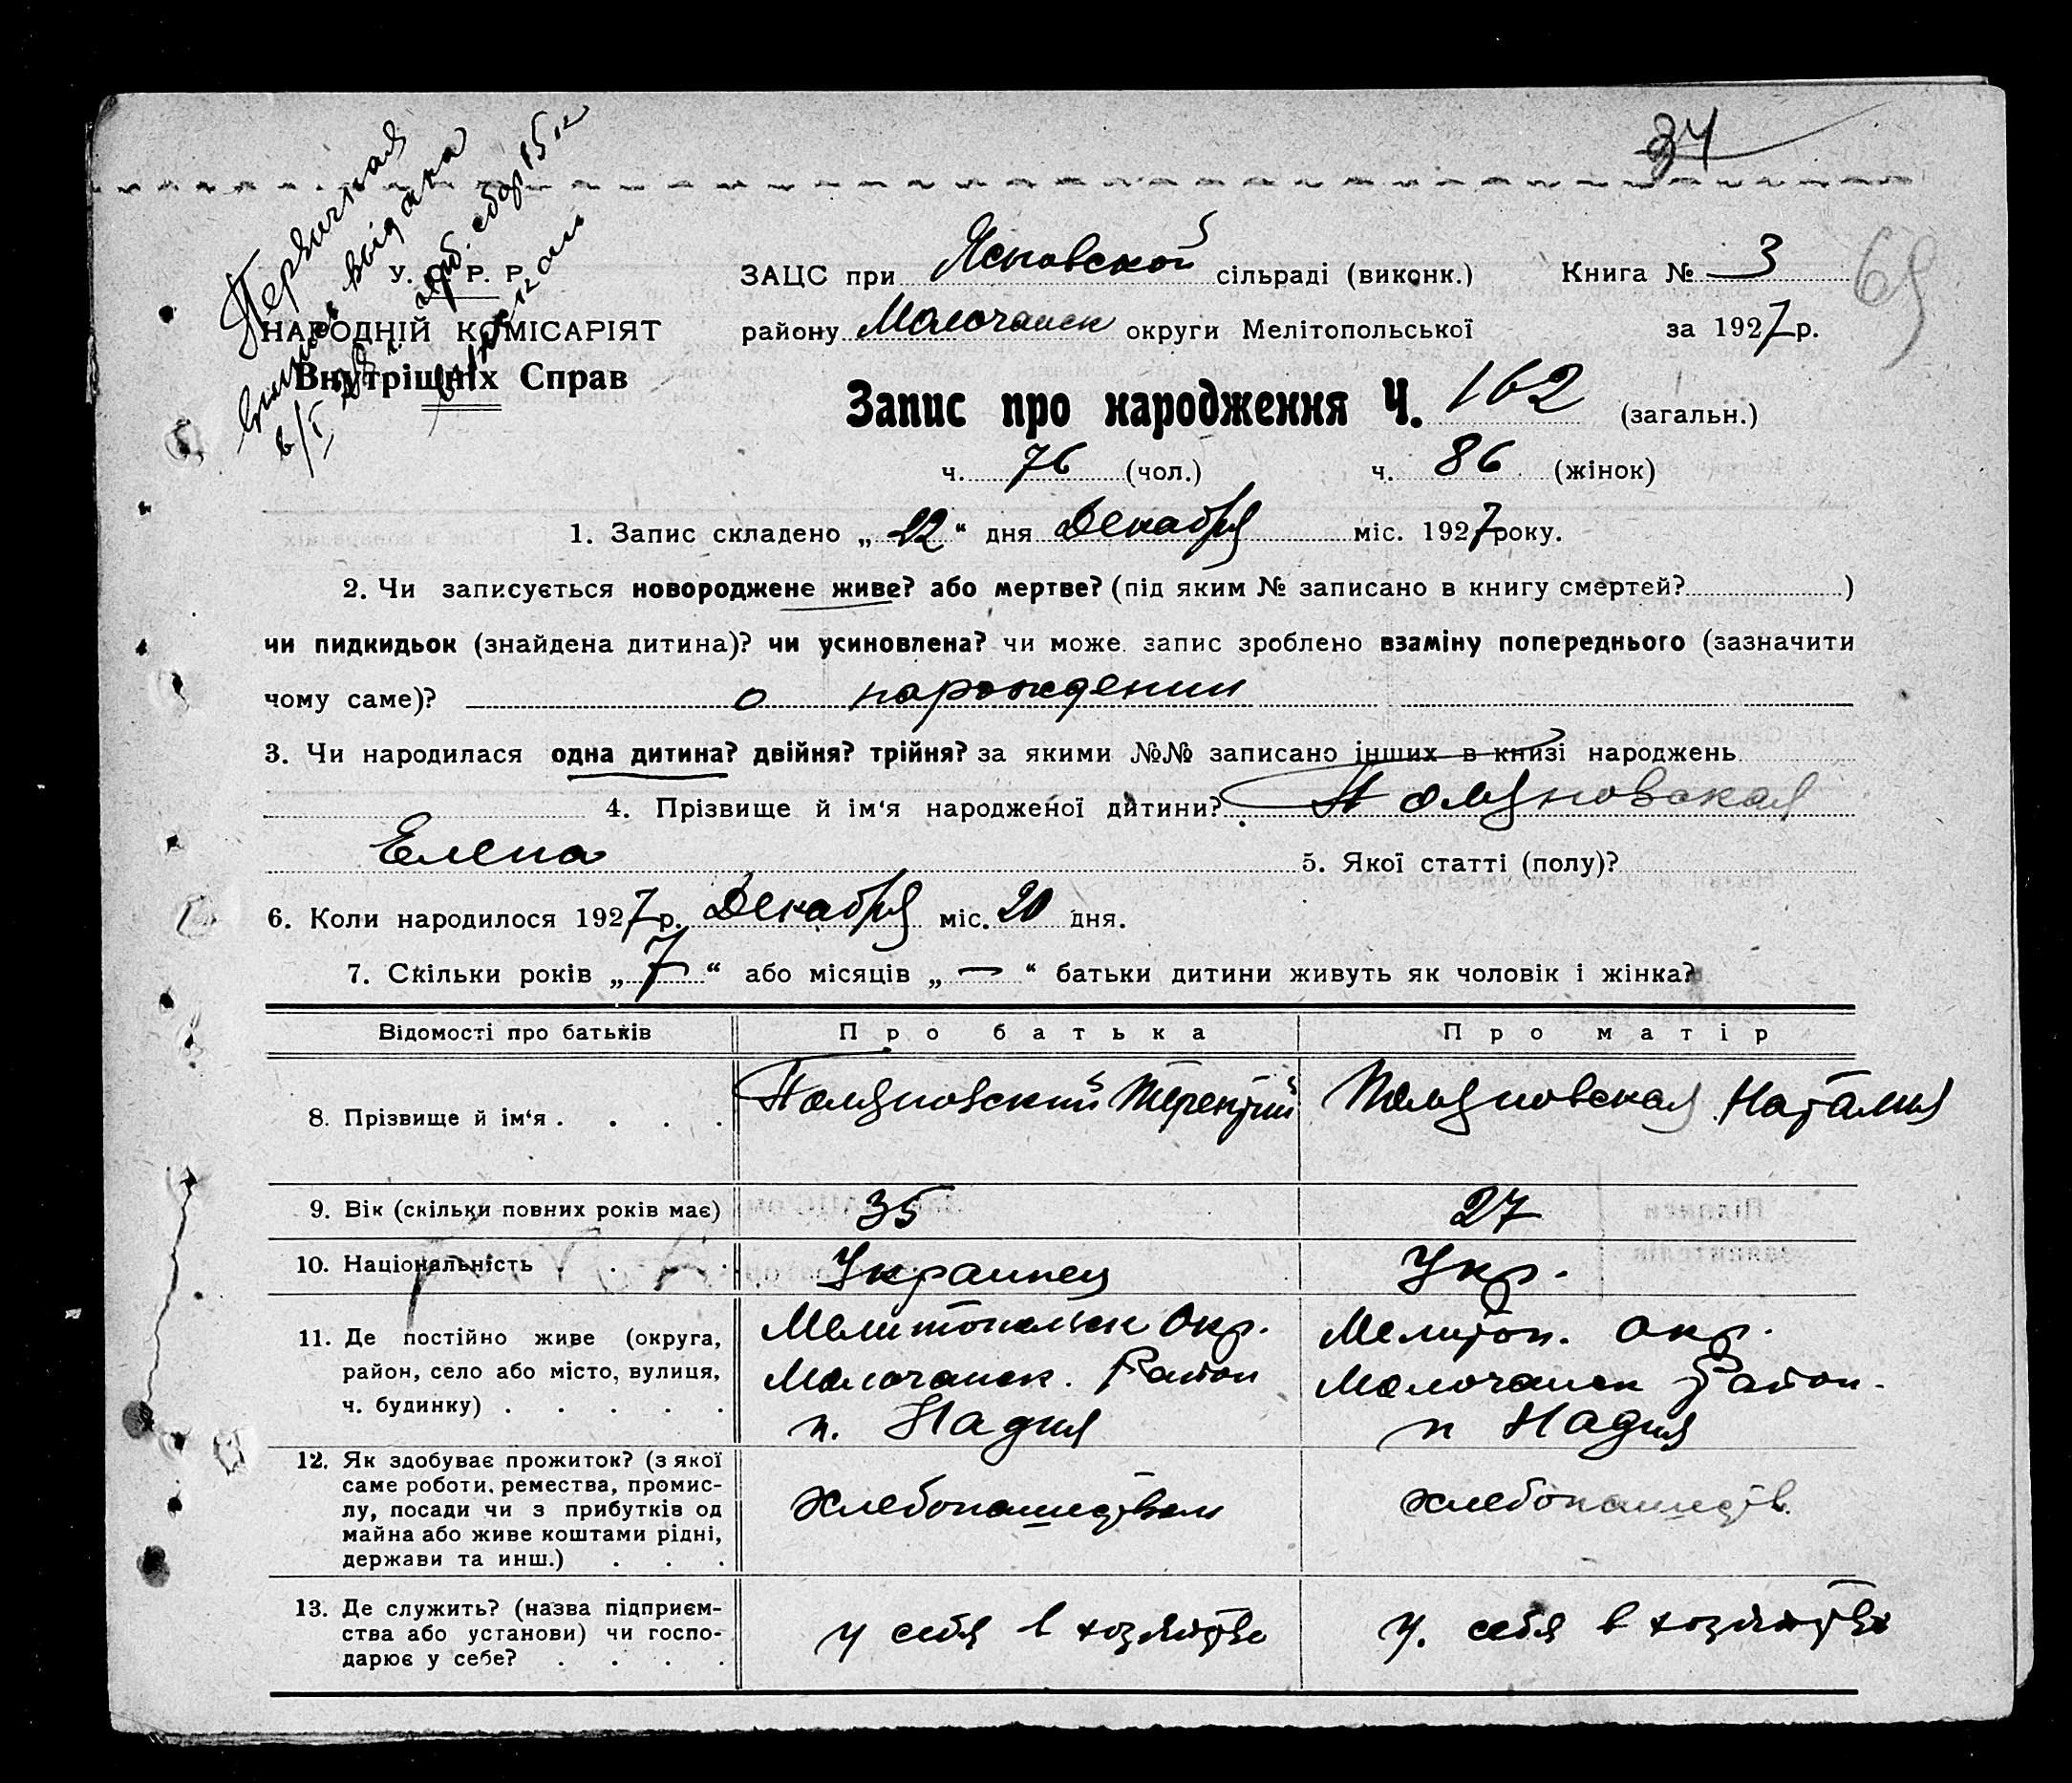 34
69
Первичная
выписка выдана
У. С. Р. Р.
НАРОДНІЙ КОМІСАРІЯТ
Внутрішніх Справ
ЗАЦС при Ясновской сільраді (виконк.) Книга № 3
району Молочанск округи Мелітопольської за 1927 р.
Запис про народження Ч. 162 (загальн.)
ч. 76 (чол.) ч. 86 (жінок)
1. Запис складено „ 22 “ дня Декабря міс. 1927 року.
2. Чи записується новороджене живе? або мертве? (під яким № записано в книгу смертей? )
чи пидкидьок (знайдена дитина)? чи усиновлена? чи може запис зроблено взаміну попереднього (зазначити
чому саме)? о нарождении
3. Чи народилася одна дитина? двійня? трійня? за якими №№ записано інших в книзі народжень
4. Прізвище й ім‘я народженої дитини? Поляновская
Елена 5. Якої статті (полу)?
6. Коли народилося 1927 р. Декабря міс. 20 дня.
7. Скільки років „ 7 “ або місяців „ — “ батьки дитини живуть як чоловік і жінка?
Відомості про батьків Про батька Про матір
8. Прізвище й ім‘я . . . . Поляновский Терентий Поляновская Наталия
9. Вік (скільки повних років має) 35 27
10. Національність . . . Украинец Укр.
11. Де постійно живе (округа, Мелитопольск Окр. Мелитоп. Окр.
район, село або місто, вулиця, Молочанск. Район Молочанск Район.
ч. будинку) . . . . . п. Надия п Надия
12. Як здобуває прожиток? (з якої
саме роботи, ремества, промис-
лу, посади чи з прибутків од Хлебопашеством хлебопашеств.
майна або живе коштами рідні,
держави та инш.) . . .
13. Де служить? (назва підприєм-
ства або установи) чи госпо- у себя в хозяйстве у. себя в хозяйстве
дарює у себе? . . . .